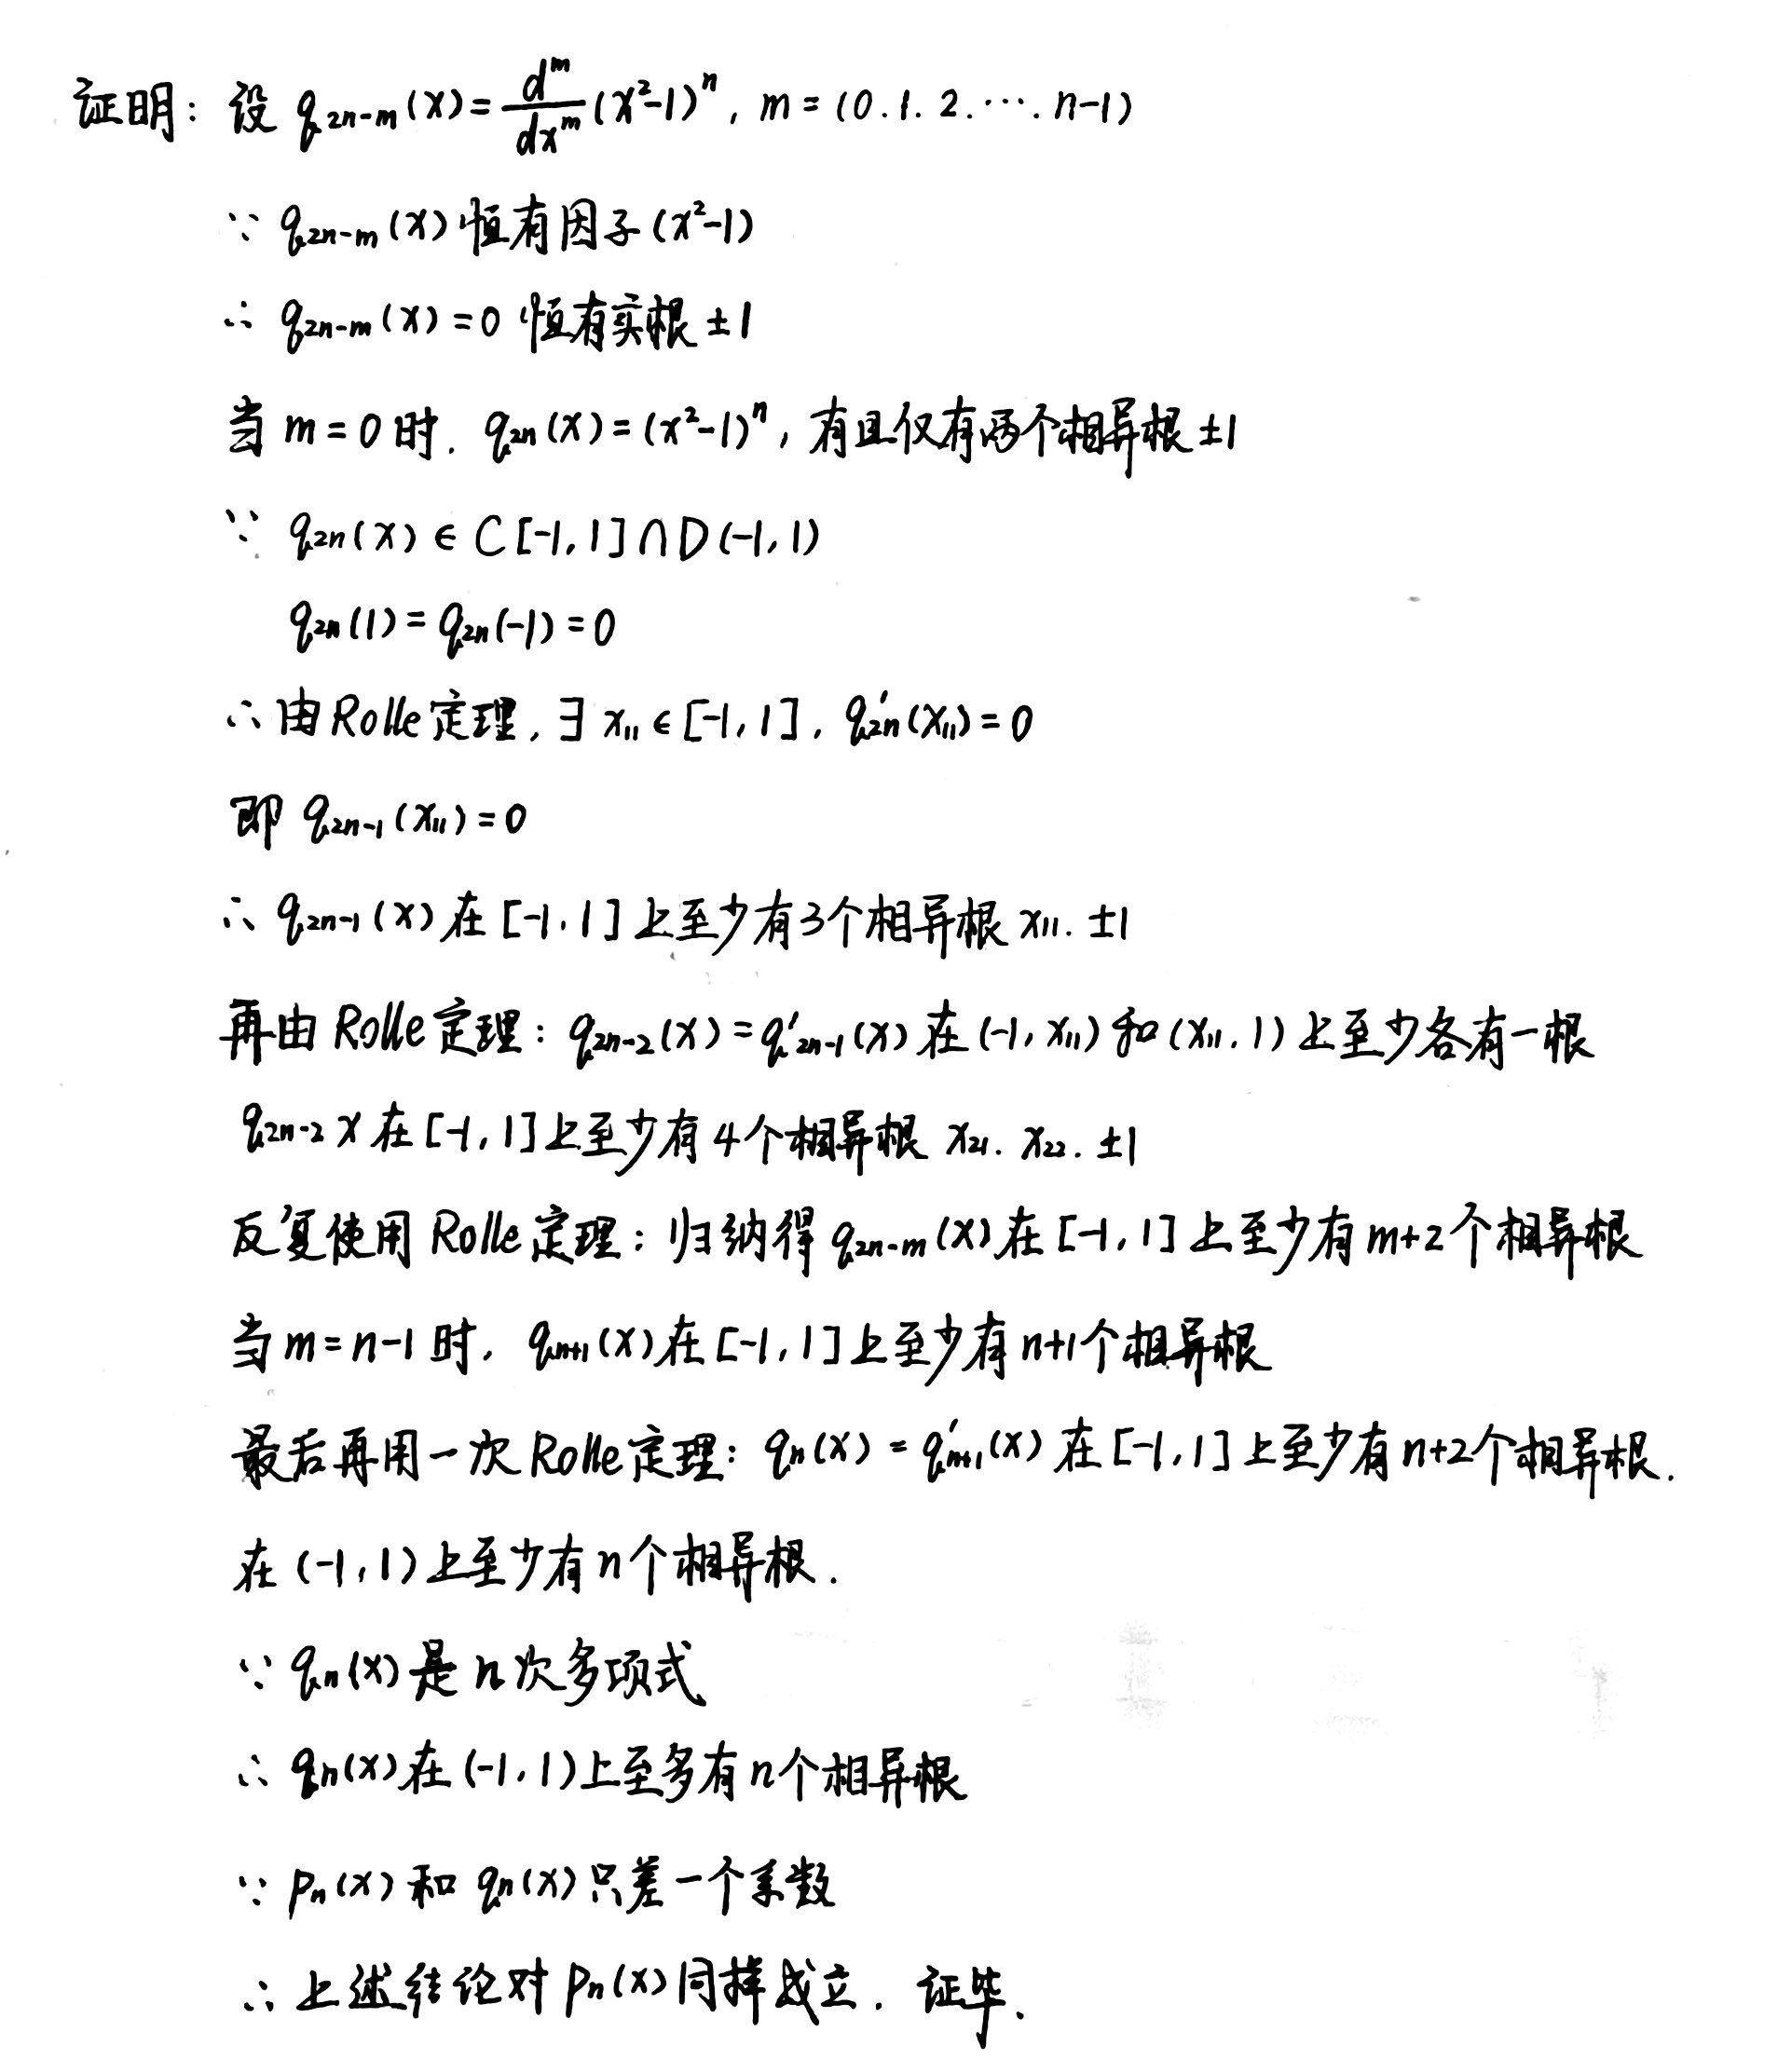 证明: 设 q₂ₙ₋ₘ(x) = dᵐ/dxᵐ (x²-1)ⁿ, m = (0. 1. 2. ⋯. n-1)
∵ q₂ₙ₋ₘ(x) 恒有因子 (x²-1)
∴ q₂ₙ₋ₘ(x) = 0 恒有实根 ±1
当 m = 0 时. q₂ₙ(x) = (x²-1)ⁿ, 有且仅有两个相异根 ±1
∵ q₂ₙ(x) ∈ C[-1, 1] ∩ D(-1, 1)
q₂ₙ(1) = q₂ₙ(-1) = 0
∴ 由 Rolle 定理, ∃ x₁₁ ∈ [-1, 1], q′₂ₙ(x₁₁) = 0
即 q₂ₙ₋₁(x₁₁) = 0
∴ q₂ₙ₋₁(x) 在 [-1, 1] 上至少有3个相异根 x₁₁. ±1
再由 Rolle 定理: q₂ₙ₋₂(x) = q′₂ₙ₋₁(x) 在 (-1, x₁₁) 和 (x₁₁, 1) 上至少各有一根
q₂ₙ₋₂ x 在 [-1, 1] 上至少有 4 个相异根 x₂₁. x₂₂. ±1
反复使用 Rolle 定理: 归纳得 q₂ₙ₋ₘ(x) 在 [-1, 1] 上至少有 m+2 个相异根
当 m = n-1 时, qₙ₊₁(x) 在 [-1, 1] 上至少有 n+1 个相异根
最后再用一次 Rolle 定理: qₙ(x) = q′ₙ₊₁(x) 在 [-1, 1] 上至少有 n+2 个相异根.
在 (-1, 1) 上至少有 n 个相异根.
∵ qₙ(x) 是 n 次多项式
∴ qₙ(x) 在 (-1, 1) 上至多有 n 个相异根
∵ pₙ(x) 和 qₙ(x) 只差一个系数
∴ 上述结论对 pₙ(x) 同样成立. 证毕.